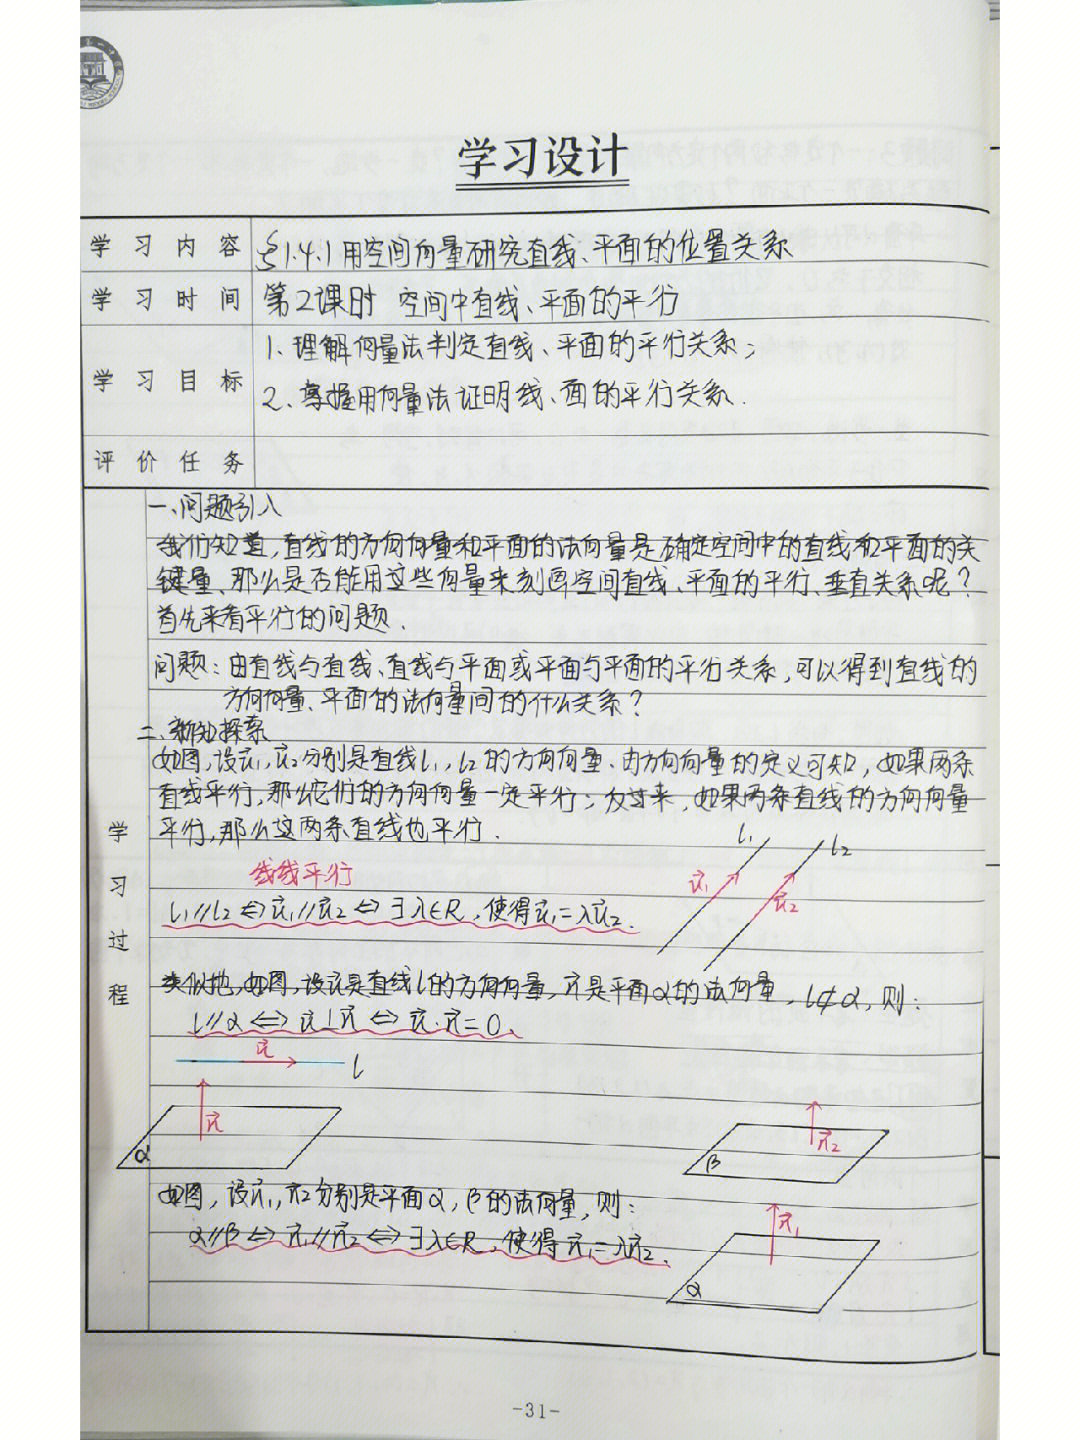 学习设计
学习内容 §1.4.1用空间向量研究直线、平面的位置关系
学习时间 第2课时 空间中直线、平面的平行
学习目标
1、理解向量法判定直线、平面的平行关系;
2、掌握用向量法证明线、面的平行关系.
评价任务
学习过程
一、问题引入
我们知道,直线的方向向量和平面的法向量是确定空间中的直线和平面的关
键量、那么是否能用这些向量来刻画空间直线、平面的平行、垂直关系呢?
首先来看平行的问题.
问题:由直线与直线、直线与平面或平面与平面的平行关系,可以得到直线的
方向向量、平面的法向量间的什么关系?
二、新知探索
如图,设u⃗₁,u⃗₂分别是直线l₁,l₂的方向向量、由方向向量的定义可知,如果两条
直线平行,那么它们的方向向量一定平行;反过来,如果两条直线的方向向量
平行,那么这两条直线也平行.
线线平行
l₁//l₂⇔u⃗₁//u⃗₂⇔∃λ∈R,使得u⃗₁=λu⃗₂.
l₁
l₂
u⃗₁
u⃗₂
类似地,如图,设u⃗是直线l的方向向量,n⃗是平面α的法向量,l⊄α,则:
l//α⇔u⃗⊥n⃗⇔u⃗·n⃗=0、
u⃗
l
n⃗
α
n⃗₂
β
如图,设n⃗₁,n⃗₂分别是平面α,β的法向量,则:
α//β⇔n⃗₁//n⃗₂⇔∃λ∈R,使得n⃗₁=λn⃗₂.
n⃗₁
α
-31-